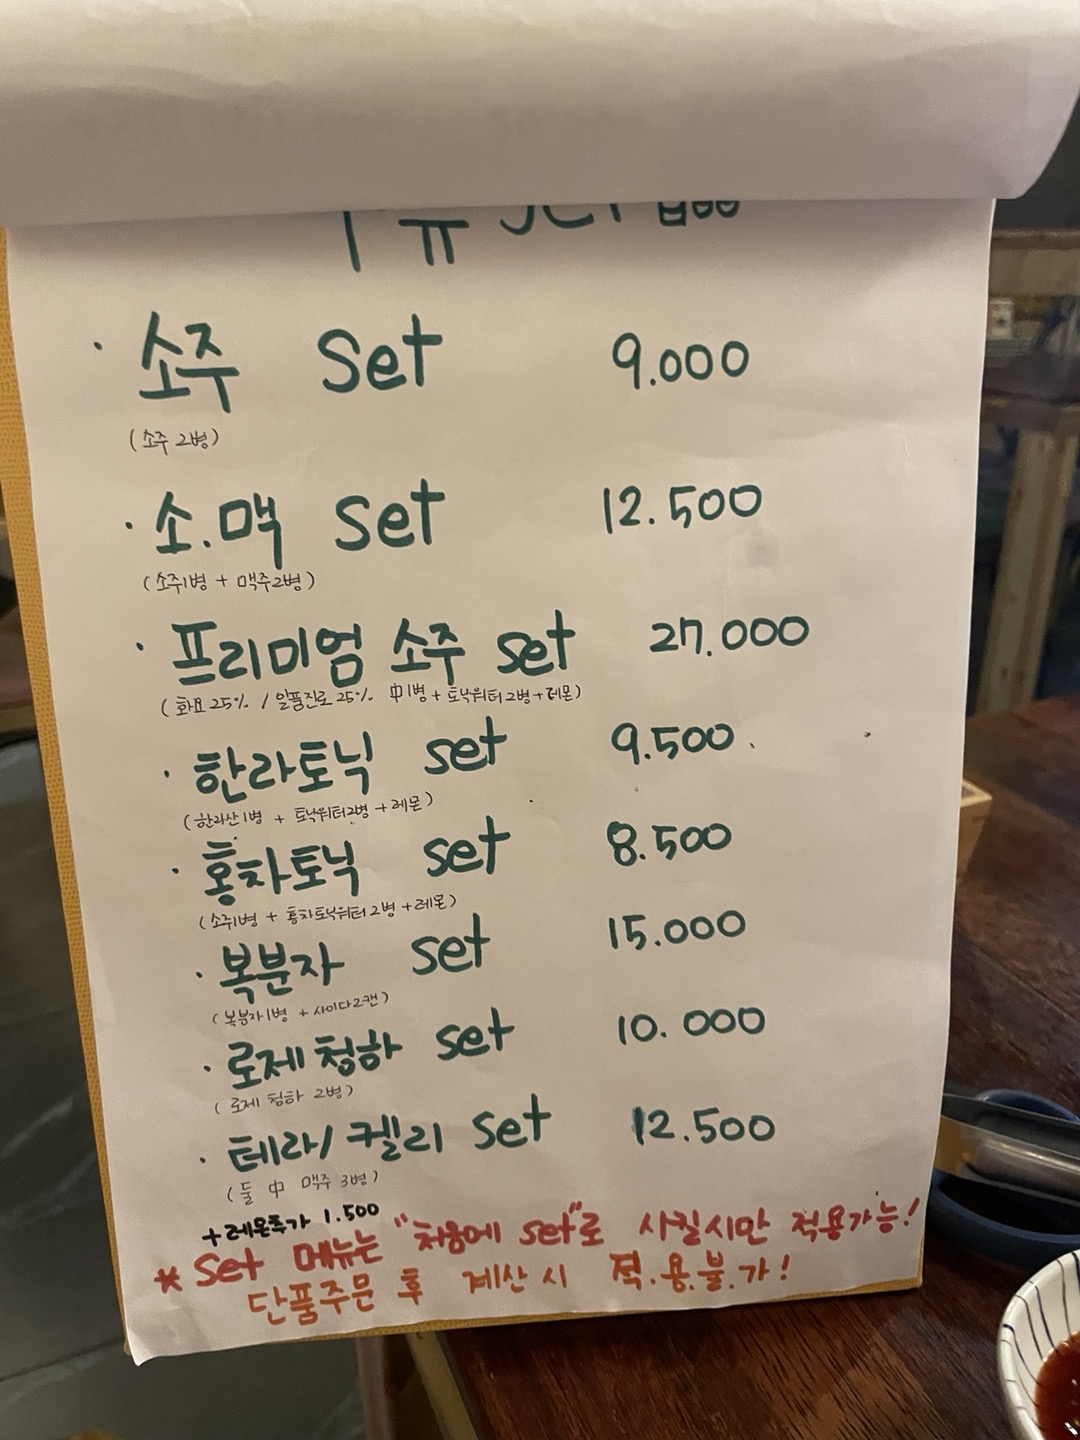 · 소주 set 9.000
(소주 2병)
· 소.맥 set 12.500
(소주1병 + 맥주2병)
· 프리미엄 소주 set 27.000
(화요25% / 일품진로25% 中1병 + 토닉워터2병+레몬)
· 한라토닉 set 9.500
(한라산1병 + 토닉워터2병 +레몬)
· 홍차토닉 set 8.500
(소주1병 + 홍차토닉워터2병 +레몬)
· 복분자 set 15.000
(복분자1병 +사이다2캔)
· 로제청하 set 10.000
(로제 청하 2병)
· 테라/켈리 set 12.500
(둘 中 맥주 3병)
+레몬추가 1.500
* set 메뉴는 "처음에 set"로 시킬시만 적용가능!
단품주문 후 계산시 적.용.불.가!